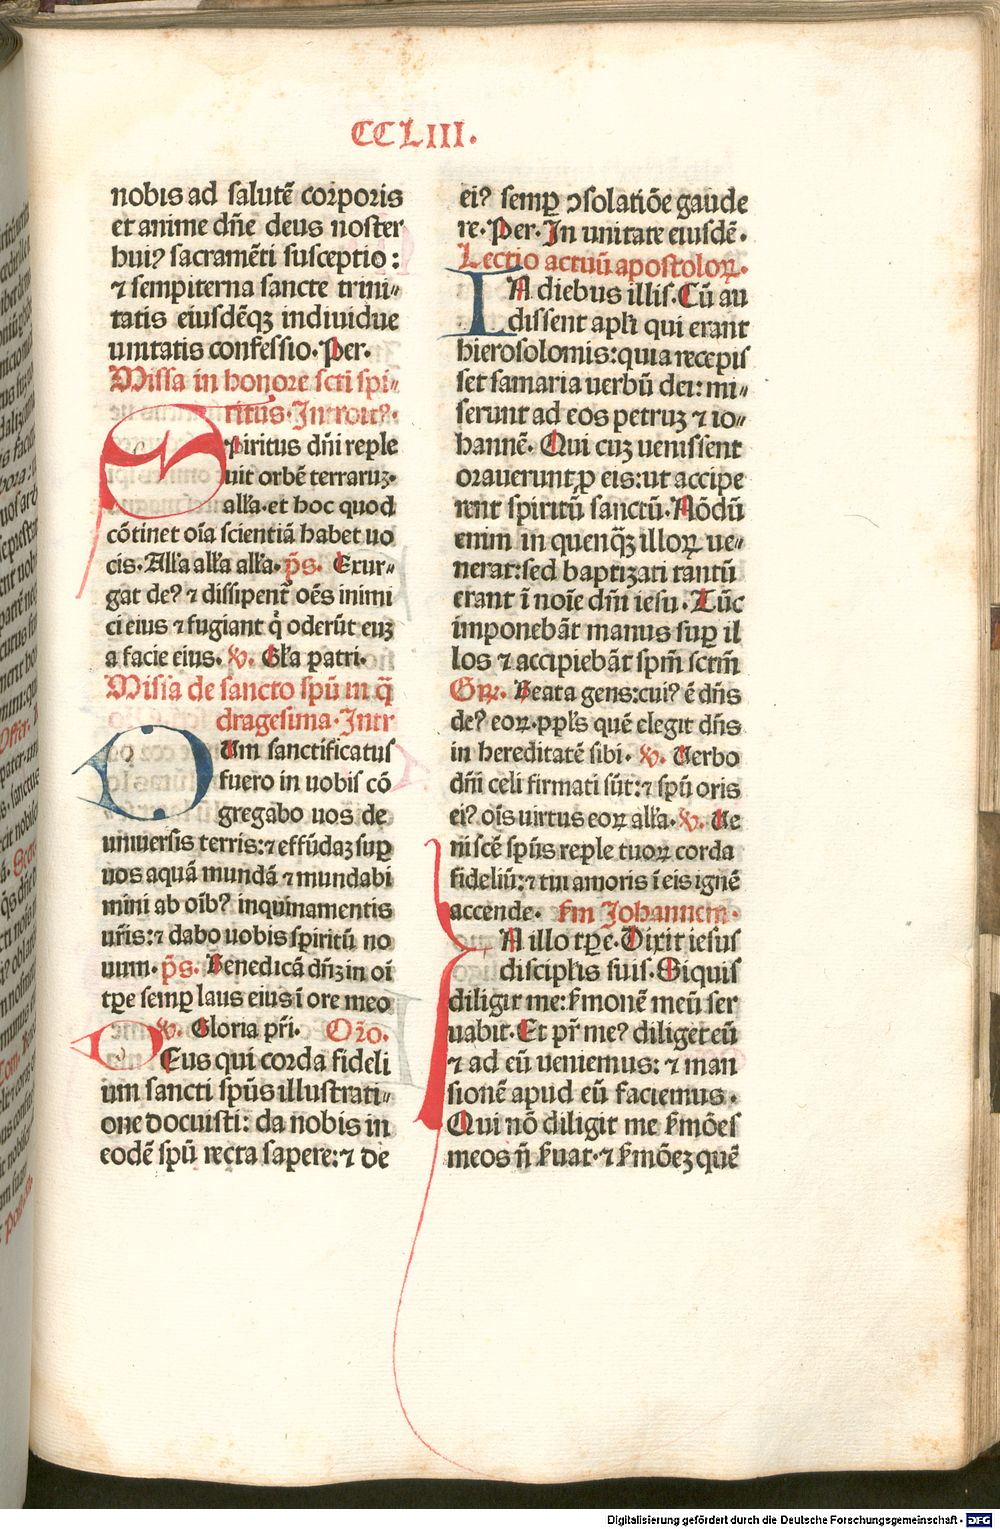 CCLIII.
nobis ad salutē corporis
et anime dn̄e deus noster
huiꝰ sacramēti susceptio :
⁊ sempiterna sancte trini⸗
tatis eiusdēqꝫ indiuidue
unitatis confessio. Per.
Missa in honore scti spi⸗
ritus. Introitꝰ.
Spiritus dn̄i reple
uit orbē terraruꝫ.
alľa. et hoc quod
cōtinet oīa scientiā habet uo
cis. Alľa alľa alľa. ps̄. Exur⸗
gat deꝰ ⁊ dissipent᷑ oēs inimi
ci eius ⁊ fugiant q̇ oderūt euꝫ
a facie eius. ℣. Gľa patri.
Missa de sancto spū in q̄
dragesima. Intr
Um sanctificatus
fuero in uobis cō
gregabo uos de
uniuersis terris: ⁊ effūdaꝫ suꝑ
uos aquā mundā ⁊ mundabi
mini ab oīb̄ꝰ inquinamentis
ur̄is: ⁊ dabo uobis spiritū no
uum. ps̄. Benedicā dn̄ꝫ in oī
tꝑe semꝑ laus eius ī ore meo
℣. Gloria pr̄i. Or̄o.
DEus qui corda fideli
um sancti spūs illustrati⸗
one docuisti: da nobis in
eodē spū recta sapere: ⁊ de
eiꝰ semꝑ ꝯsolatiōe gaude
re. Per. In unitate eiusdē.
Lectio actuū apostoloꝝ.
IN diebus illis. Cū au
dissent apľi qui erant
hierosolomis: quia recepis
set samaria uerbū dei: mi⸗
serunt ad eos petruꝫ ⁊ io⸗
hannē. Qui cuꝫ uenissent
orauerunt ꝓ eis: ut accipe
rent spiritū sanctū. Nōdū
enim in quenqꝫ̄ illoꝝ ue⸗
nerat: sed baptizati tantū
erant ī noīe dn̄i iesu. Tūc
imponebāt manus suꝑ il
los ⁊ accipiebāt spm̄ sctm̄
Gꝝ. Beata gens: cuiꝰ ē dn̄s
deꝰ eoꝝ. ppľs quē elegit dn̄s
in hereditatē sibi. ℣. Uerbo
dn̄i celi firmati sūt: ⁊ spū oris
eiꝰ oīs uirtus eoꝝ alľa. ℣. Ue
ni scē spūs reple tuoꝝ corda
fideliū: ⁊ tui amoris ī eis ignē
accende. ẜm Johannem.
IN illo tꝑe. Dixit iesus
discipľis suis. Siquis
diligit me: ẜmonē meū ser
uabit. Et pr̄ meꝰ diliget eū
⁊ ad eū ueniemus: ⁊ man
sionē apud eū faciemus.
Qui nō diligit me ẜmōes
meos n̄ ẜuat. ⁊ ẜmōeꝫ quē
Digitalisierung gefördert durch die Deutsche Forschungsgemeinschaft - DFG